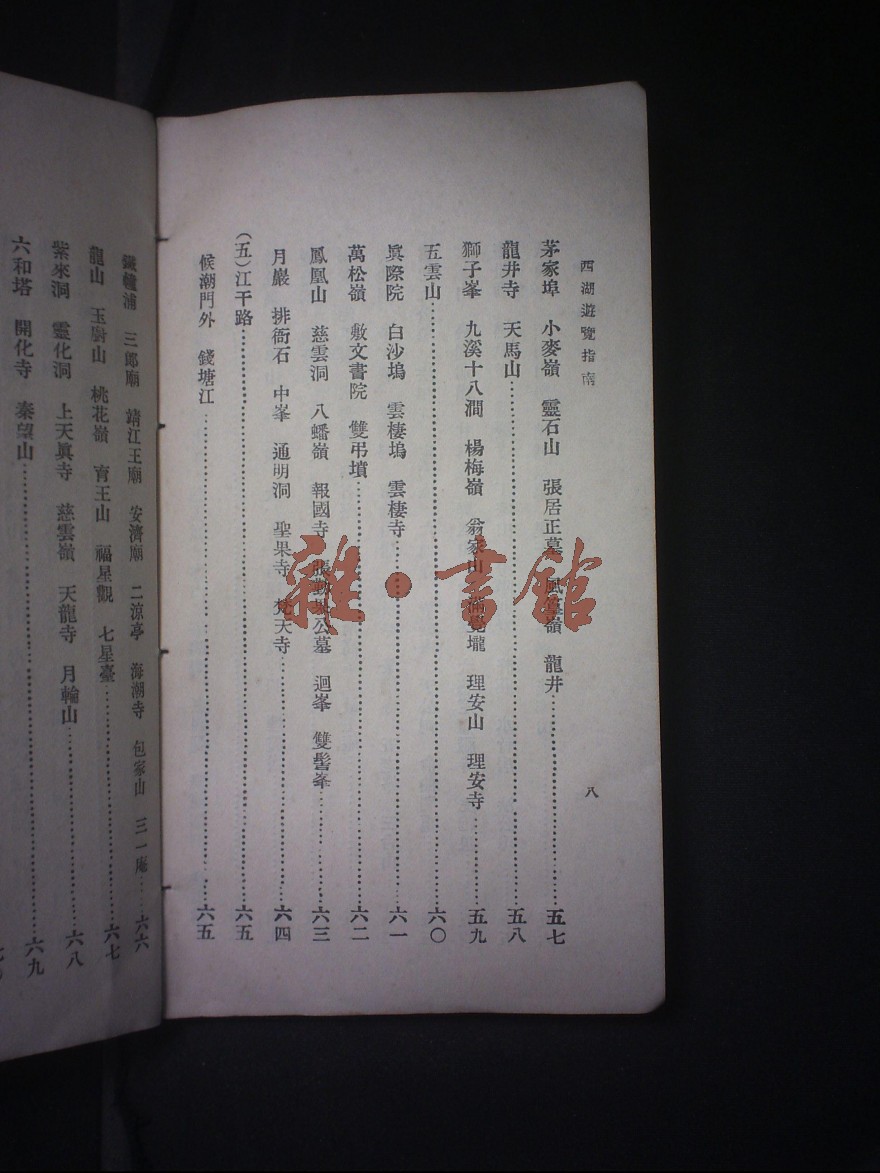 西湖遊覽指南
八
茅家埠 小麥嶺 靈石山 張居正墓 風篁嶺 龍井……五七
龍井寺 天馬山……五八
獅子峯 九溪十八澗 楊梅嶺 翁家山 滿覺壠 理安山 理安寺……五九
五雲山……六〇
眞際院 白沙塢 雲棲塢 雲棲寺……六一
萬松嶺 敷文書院 雙弔墳……六二
鳳凰山 慈雲洞 八蟠嶺 報國寺 張勤果公墓 迴峯 雙髻峯……六三
月巖 排衙石 中峯 通明洞 聖果寺 梵天寺……六四
(五)江干路……六五
候潮門外 錢塘江……六五
鐵幢浦 三郎廟 靖江王廟 安濟廟 二涼亭 海潮寺 包家山 三一庵……六六
龍山 玉廚山 桃花嶺 育王山 福星觀 七星臺……六七
紫來洞 靈化洞 上天眞寺 慈雲嶺 天龍寺 月輪山……六八
六和塔 開化寺 秦望山……六九
雜·書館